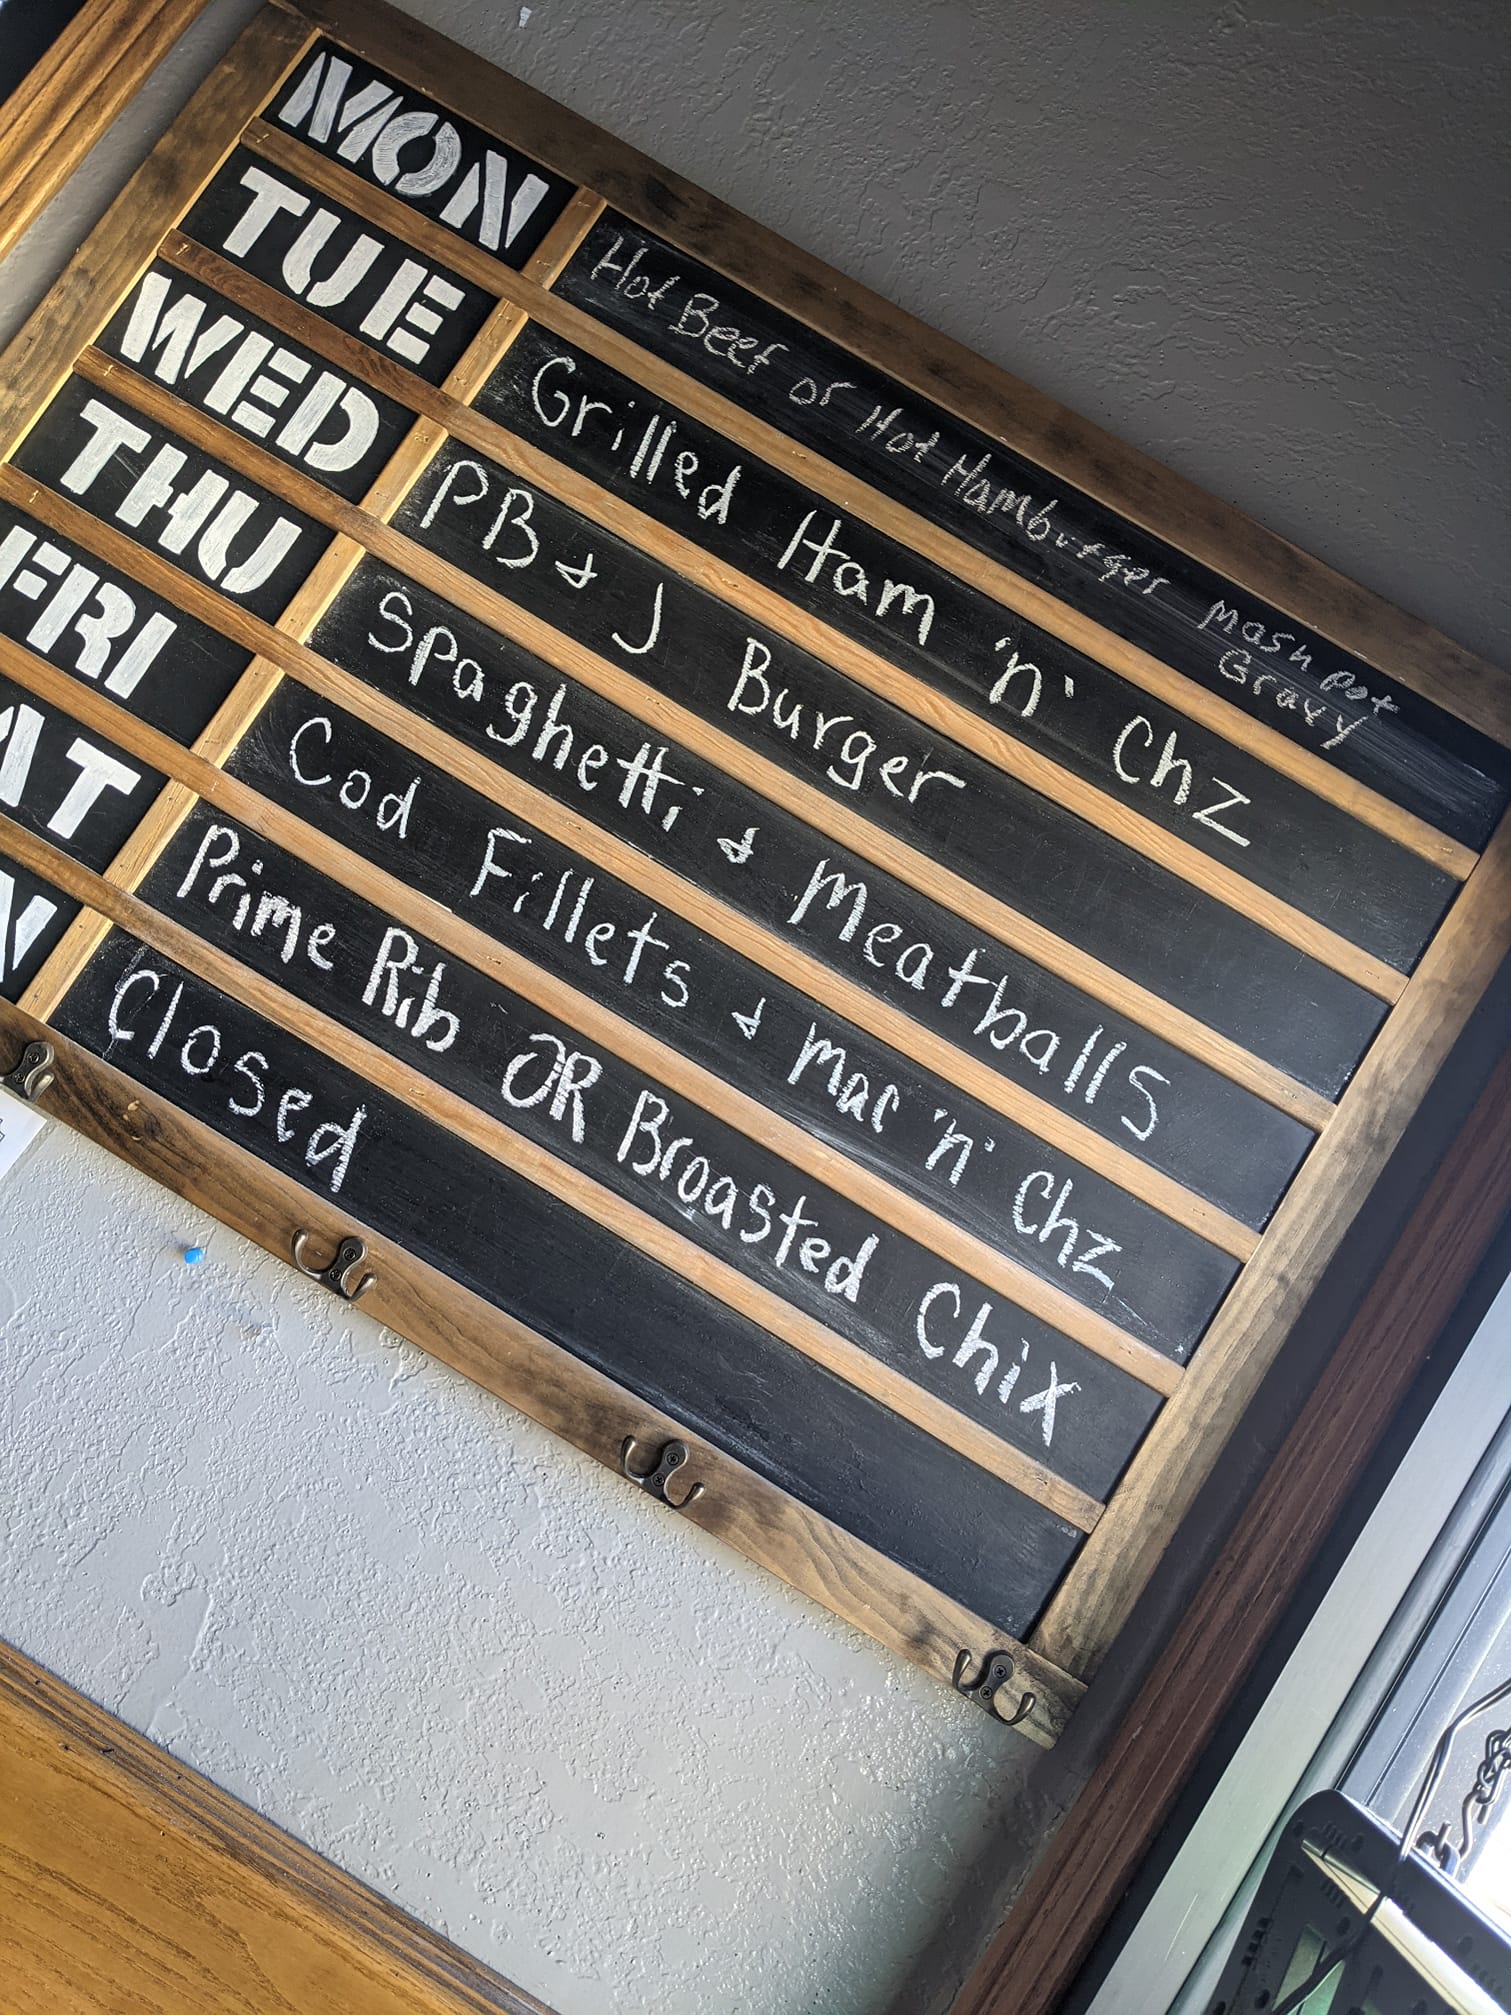 MON Hot Beef or Hot Hamburger Mash Pot
Gravy
TUE Grilled Ham 'n' Chz
WED PB & J Burger
THU Spaghetti & Meatballs
FRI Cod Fillets & Mac 'n' Chz
AT Prime Rib OR Broasted Chix
N Closed